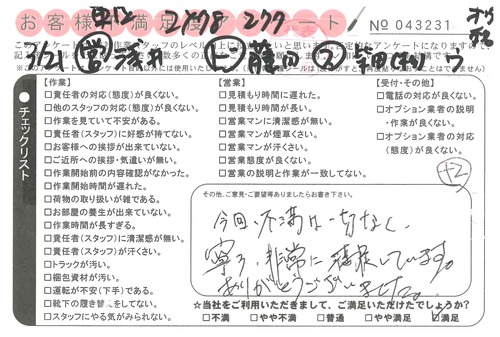 お客様満足度アンケート
№ 043231
チェックリスト
【作業】
□責任者の対応(態度)が良くない。
□他のスタッフの対応(態度)が良くない。
□作業を見ていて不安がある。
□責任者(スタッフ)に好感が持てない。
□お客様への挨拶が出来ていない。
□ご近所への挨拶・気遣いが無い。
□作業開始前の内容確認がなかった。
□作業開始時間が遅れた。
□荷物の取り扱いが雑である。
□お部屋の養生が出来ていない。
□作業時間が長すぎる。
□責任者(スタッフ)に清潔感が無い。
□責任者(スタッフ)が汗くさい。
□トラックが汚い。
□梱包資材が汚い。
□運転が不安(下手)である。
□靴下の履き替えをしてない。
□スタッフにやる気がみられない。
【営業】
□見積もり時間に遅れた。
□見積もり時間が長い。
□営業マンに清潔感が無い。
□営業マンが煙草くさい。
□営業マンが汗くさい。
□営業態度が良くない。
□営業の説明と作業が一致してない。
【受付・その他】
□電話の対応が良くない。
□オプション業者の説明・作業が良くない。
□オプション業者の対応(態度)が良くない。
その他、ご意見・ご要望等ありましたらお書き下さい。
今回、不満は一切なく、
寧ろ、非常に感謝しています。
ありがとうございました。
☆当社をご利用いただきまして、ご満足いただけたでしょうか?
□不満 □やや不満 □普通 □やや満足 ☑満足